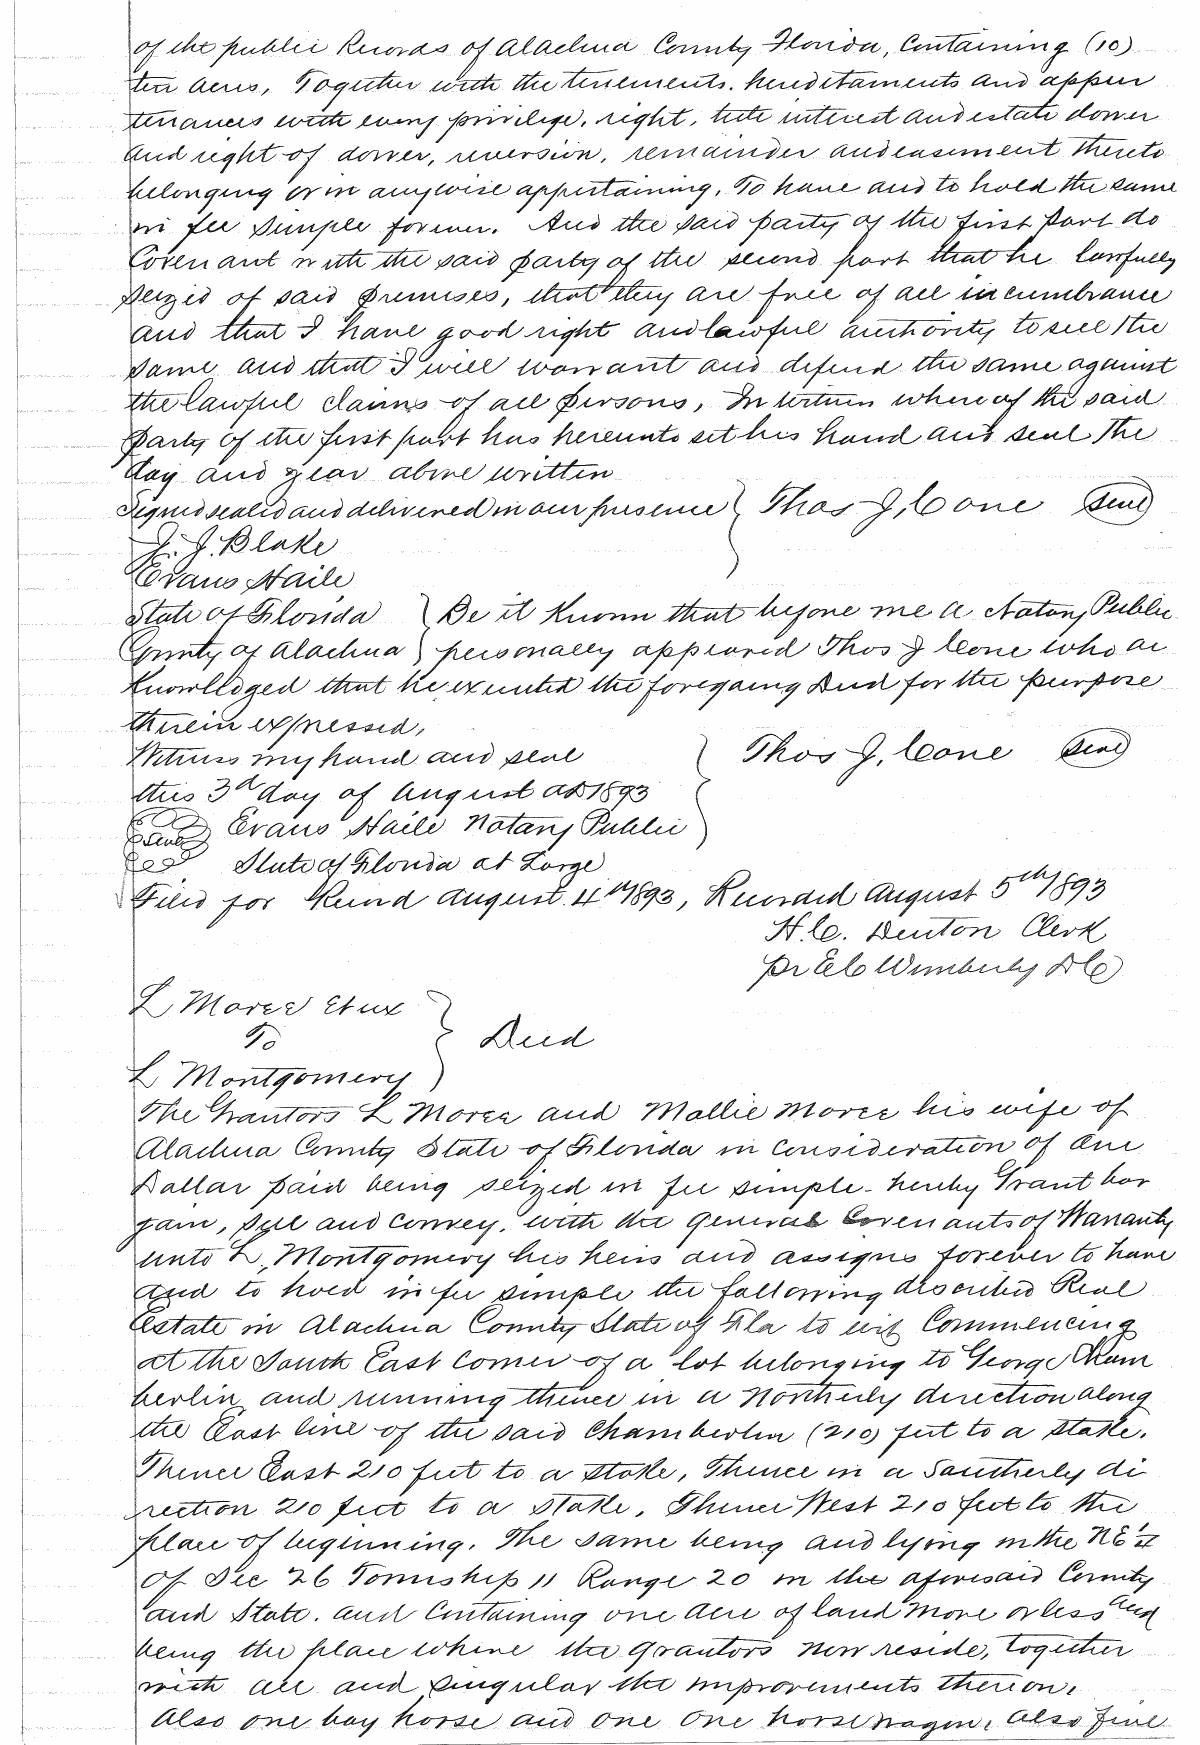 of the public Records of Alachua County Florida, Containing (10)
ten acres, Together with the tenements. hereditaments and appur
tenances with every privilege, right, title interest and estate dower
and right of dower, reversion, remainder and easement thereto
belonging or in anywise appertaining, To have and to hold the same
in fee simple forever. And the said party of the first part do
Covenant with the said party of the second part that he lawfully
seized of said premises, that they are free of all incumbrance
and that I have good right and lawful authority to sell the
same and that I will warrant and defend the same against
the lawful claims of all persons, In whereof the said
party of the first part has hereunto set his hand and seal the
day and year above written
Signed sealed and delivered in our presence } Thos J. Cone Seal
J. J. Blake
Evans Haile
State of Florida } Be it Known that before me a Notary Public
County of Alachua } personally appeared Thos J Cone who ac
knowledged that he executed the foregoing Deed for the purpose
therein expressed,
Witness my hand and seal } Thos J. Cone Seal
this 3d day of August AD 1893
Seal Evans Haile Notary Public
State of Florida at Large
Filed for Record August 4th 1893, Recorded August 5th 1893
H. C. Denton Clerk
Pr E C Wimberly D C
L Moree et ux
To } Deed
L Montgomery
The Grantors L Moree and Mollie Moree his wife of
Alachua County State of Florida in consideration of One
Dollar paid being seized in fee simple- hereby Grant bar
gain, sell and convey. with the general Covenants of Warranty
unto L, Montgomery his heirs and assigns forever to have
and to hold in fee simple the following described Real
Estate in Alachua County State of Fla to wit Commencing
at the South East Corner of a lot belonging to George Cham
berlin and running thence in a Northerly direction along
the East line of the said Chamberlin (210) feet to a stake.
Thence East 210 feet to a stake, Thence in a Southerly di
rection 210 feet to a stake, Thence West 210 feet to the
place of beginning. The same being and lying in the NE 1/4
of Sec 26 Township 11 Range 20 in the aforesaid County
and State. and Containing one acre of land more or less and
being the place where the grantors now reside, together
with all and singular the improvements thereon,
Also one bay horse and one one horse wagon, also five